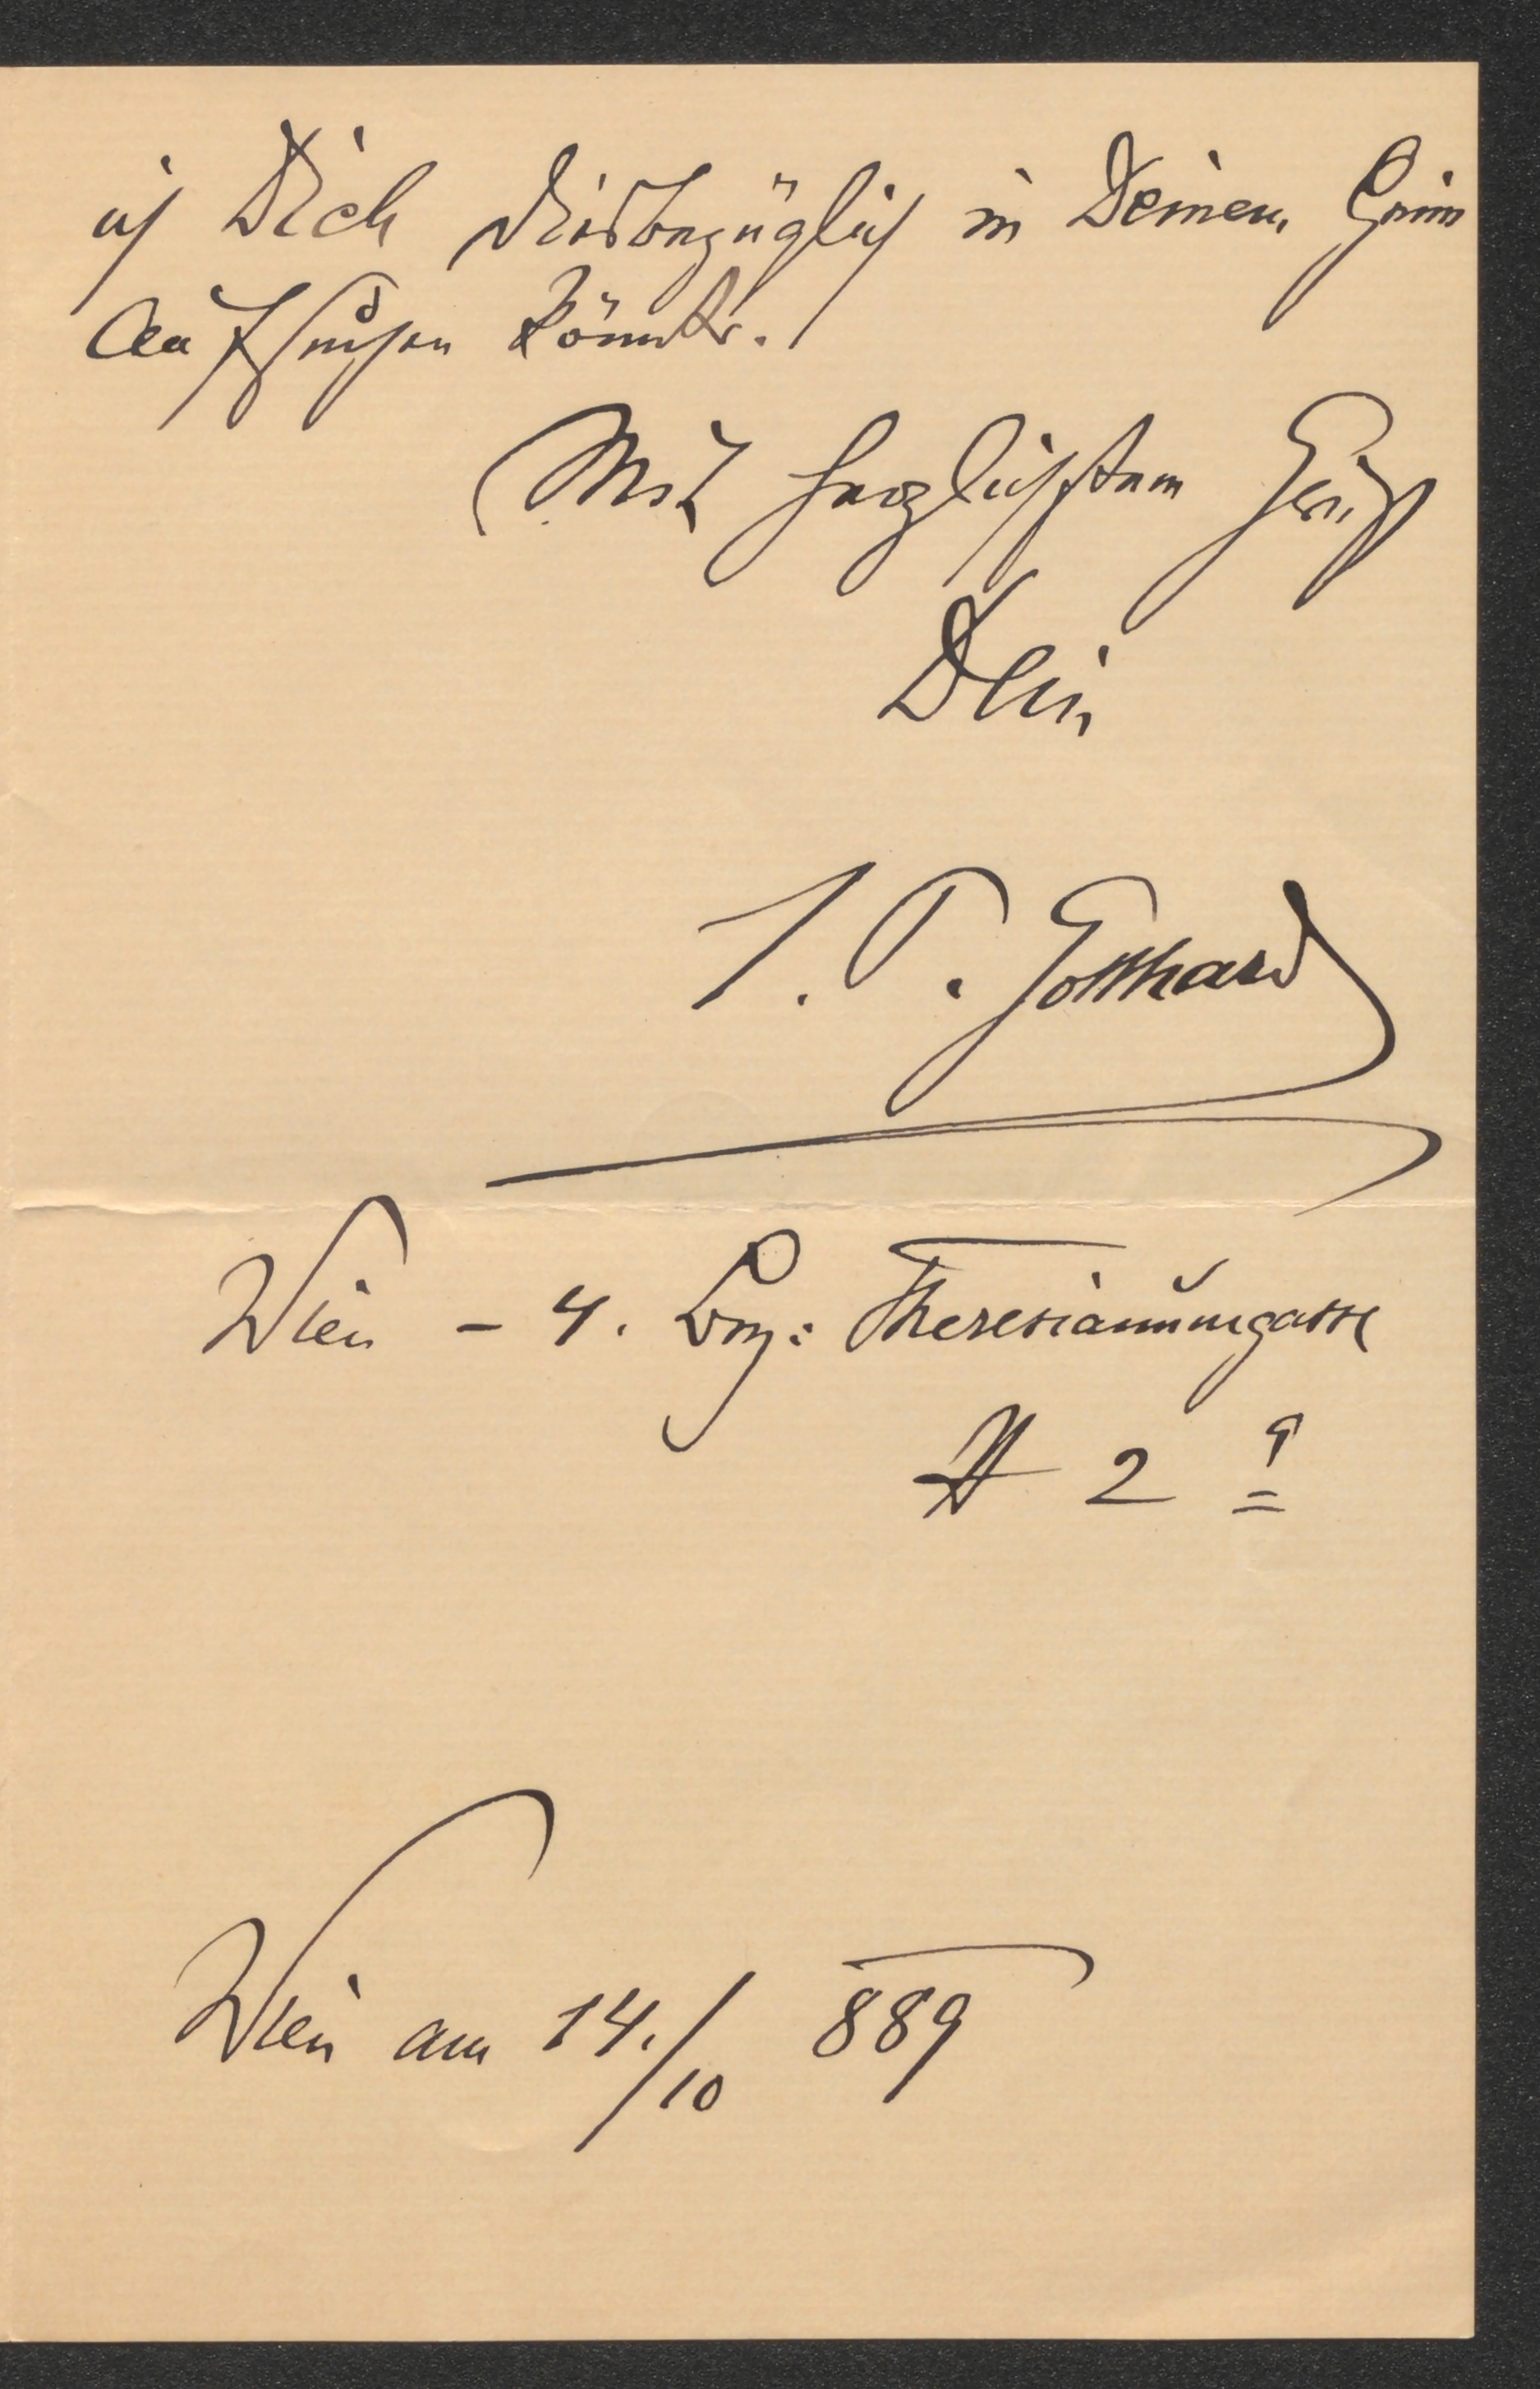 ich Dich diesbezüglich in Deinem Heim
aufsuchen könnte.
Mit herzlichstem Gruß
Dein
J. P. Gotthard
Wien – 4. Bez: Theresianumgasse
№ 2
Wien am 14./10 889